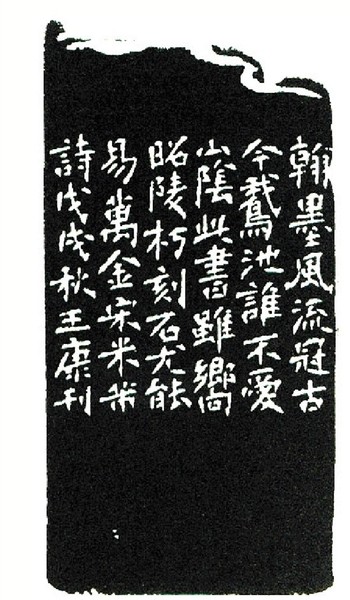 翰墨風流冠古
今鵞池誰不愛
山陰此書雖嚮
昭陵朽刻石尤能
易萬金宋米芾
詩戊戌秋王康刊